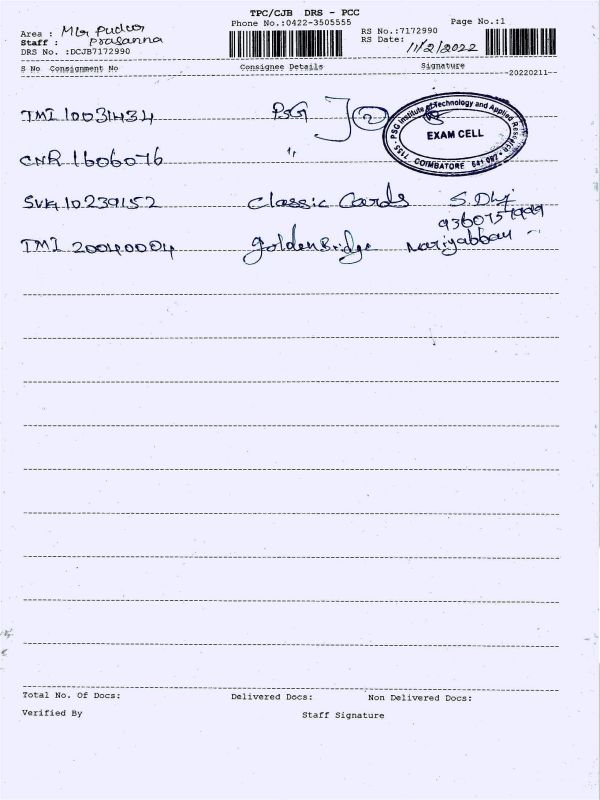 TPC/CJB DRS - PCC
Phone No.:0422-3505555
Page No.:1
Area : MGr Pudur
Staff : Prasanna
DRS No. :DCJB7172990
RS No.:7172990
RS Date: 11/2/2022
S No Consignment No Consignee Details Signature
20220211
TMI 10031434 PSG 2
PSG Institute of Technology and Applied Research
EXAM CELL
COIMBATORE 641 062
CNR 1606076 "
SVK 10239152 Classic Cards
TMI 20040004 Golden Bridge Mariyabban
Total No. Of Docs: Delivered Docs: Non Delivered Docs:
Verified By Staff Signature